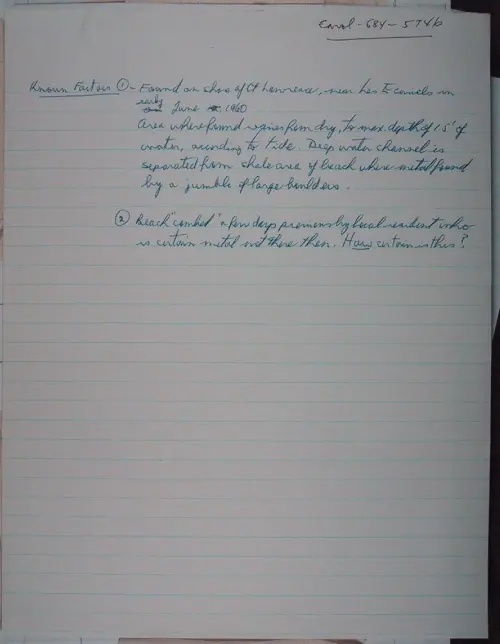 Carol - 684 - 5746
Known Factors ① - Found on shore of St Lawrence, near Les Ecureuils in
early June 1960
Area where found varies from dry, to max. depth of 15' of
water, according to tide. Deep water channel is
separated from shale area of beach where metal found
by a jumble of large boulders.
② Beach "combed" a few days previous by local resident who
is certain metal not there then. How certain is this?